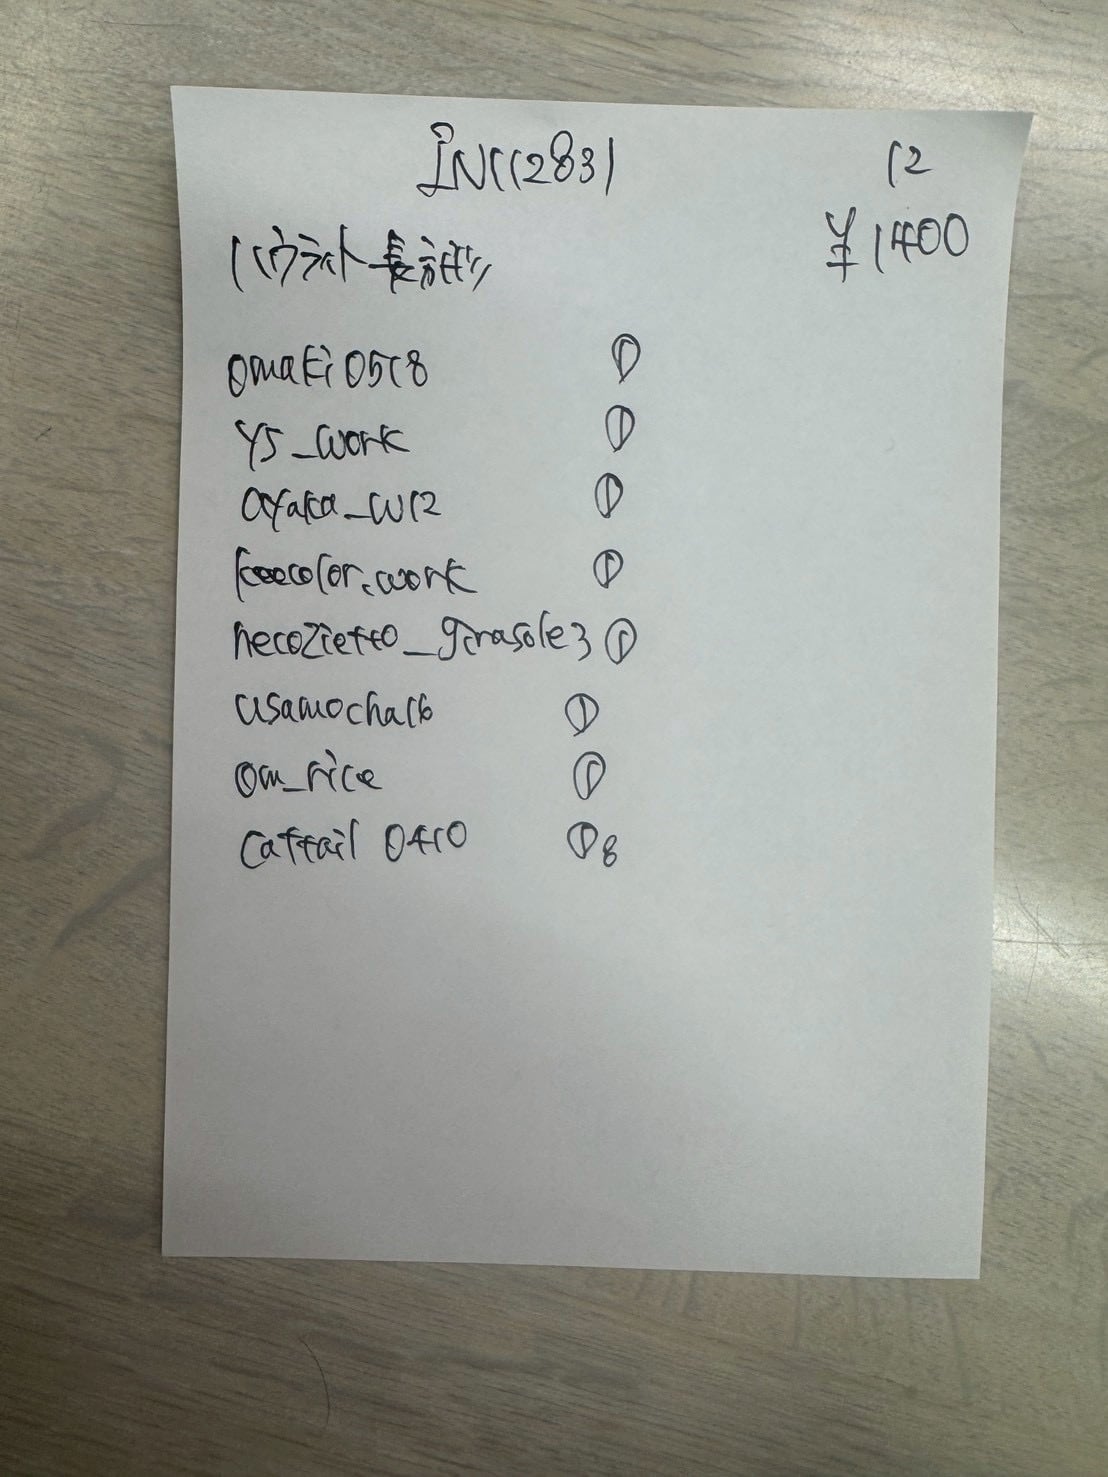 INC11283)
12
ハウライト長方形
¥1400
omaki0518 ①
ys_work ①
ayaka_w12 ①
keecolor.work ①
necozietto_girasole3 ①
usamocha16 ①
om_rice ①
cattail 0410 ① 8